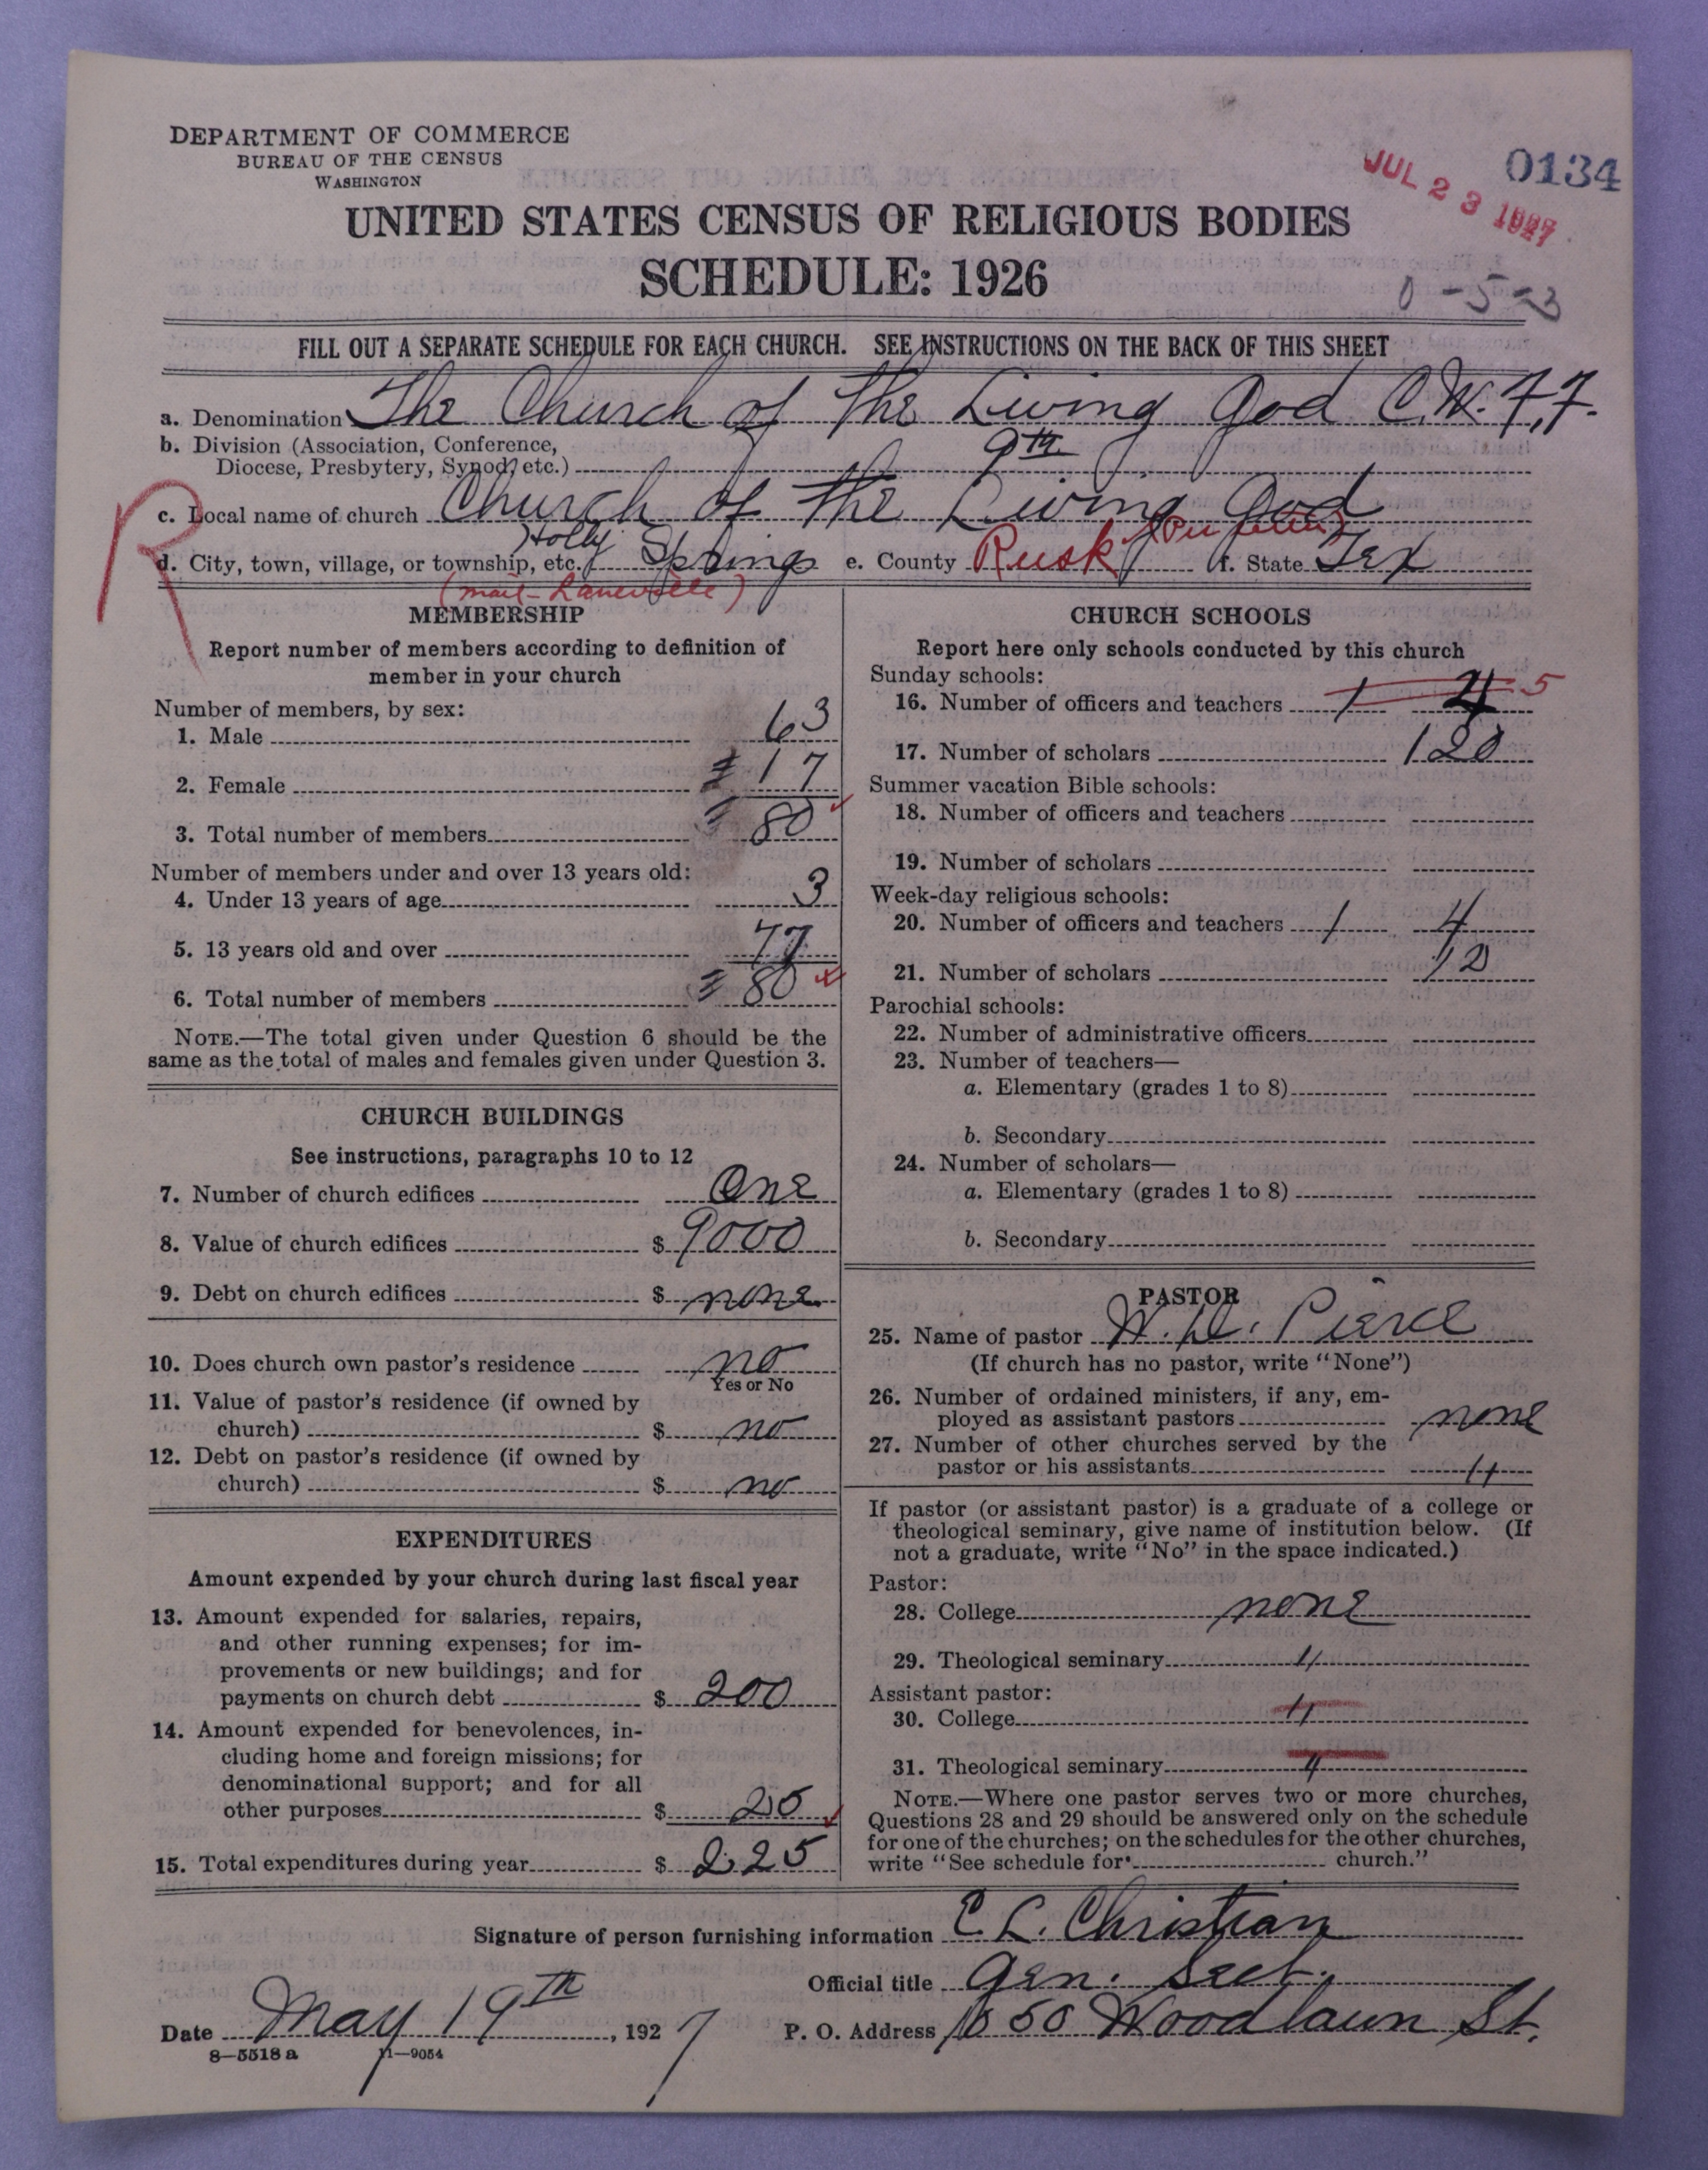 DEPARTMENT OF COMMERCE
BUREAU OF THE CENSUS
WASHINGTON
JUL 23 1927
0134
UNITED STATES CENSUS OF RELIGIOUS BODIES
SCHEDULE: 1926
0-5-23
FILL OUT A SEPARATE SCHEDULE FOR EACH CHURCH. SEE INSTRUCTIONS ON THE BACK OF THIS SHEET
a. Denomination The Church of the Living God C.W.F.F.
b. Division (Association, Conference,
Diocese, Presbytery, Synod, etc.) 9th
R
c. Local name of church Church of the Living God
d. City, town, village, or township, etc. Holly Springs e. County Rusk f. State Tex
(mail - Laneville)
MEMBERSHIP
Report number of members according to definition of
member in your church
Number of members, by sex:
1. Male 63
2. Female 17
3. Total number of members 80
Number of members under and over 13 years old:
4. Under 13 years of age 3
5. 13 years old and over 77
6. Total number of members 80
NOTE.—The total given under Question 6 should be the
same as the total of males and females given under Question 3.
CHURCH BUILDINGS
See instructions, paragraphs 10 to 12
7. Number of church edifices One
8. Value of church edifices $ 9000
9. Debt on church edifices $ none
10. Does church own pastor's residence no
Yes or No
11. Value of pastor's residence (if owned by
church) $ no
12. Debt on pastor's residence (if owned by
church) $ no
EXPENDITURES
Amount expended by your church during last fiscal year
13. Amount expended for salaries, repairs,
and other running expenses; for im-
provements or new buildings; and for
payments on church debt $ 200
14. Amount expended for benevolences, in-
cluding home and foreign missions; for
denominational support; and for all
other purposes $ 25
15. Total expenditures during year $ 225
CHURCH SCHOOLS
Report here only schools conducted by this church
Sunday schools:
16. Number of officers and teachers 1 4 5
17. Number of scholars 120
Summer vacation Bible schools:
18. Number of officers and teachers
19. Number of scholars
Week-day religious schools:
20. Number of officers and teachers 1 4
21. Number of scholars 12
Parochial schools:
22. Number of administrative officers
23. Number of teachers—
a. Elementary (grades 1 to 8)
b. Secondary
24. Number of scholars—
a. Elementary (grades 1 to 8)
b. Secondary
PASTOR
25. Name of pastor W. D. Pierce
(If church has no pastor, write "None")
26. Number of ordained ministers, if any, em-
ployed as assistant pastors none
27. Number of other churches served by the
pastor or his assistants "
If pastor (or assistant pastor) is a graduate of a college or
theological seminary, give name of institution below. (If
not a graduate, write "No" in the space indicated.)
Pastor:
28. College none
29. Theological seminary "
Assistant pastor:
30. College "
31. Theological seminary "
NOTE.—Where one pastor serves two or more churches,
Questions 28 and 29 should be answered only on the schedule
for one of the churches; on the schedules for the other churches,
write "See schedule for church."
Signature of person furnishing information E. L. Christian
Official title Gen. Sect.
Date May 19th, 1927 P. O. Address 1050 Woodlawn St.
8—5518 a 11—9054